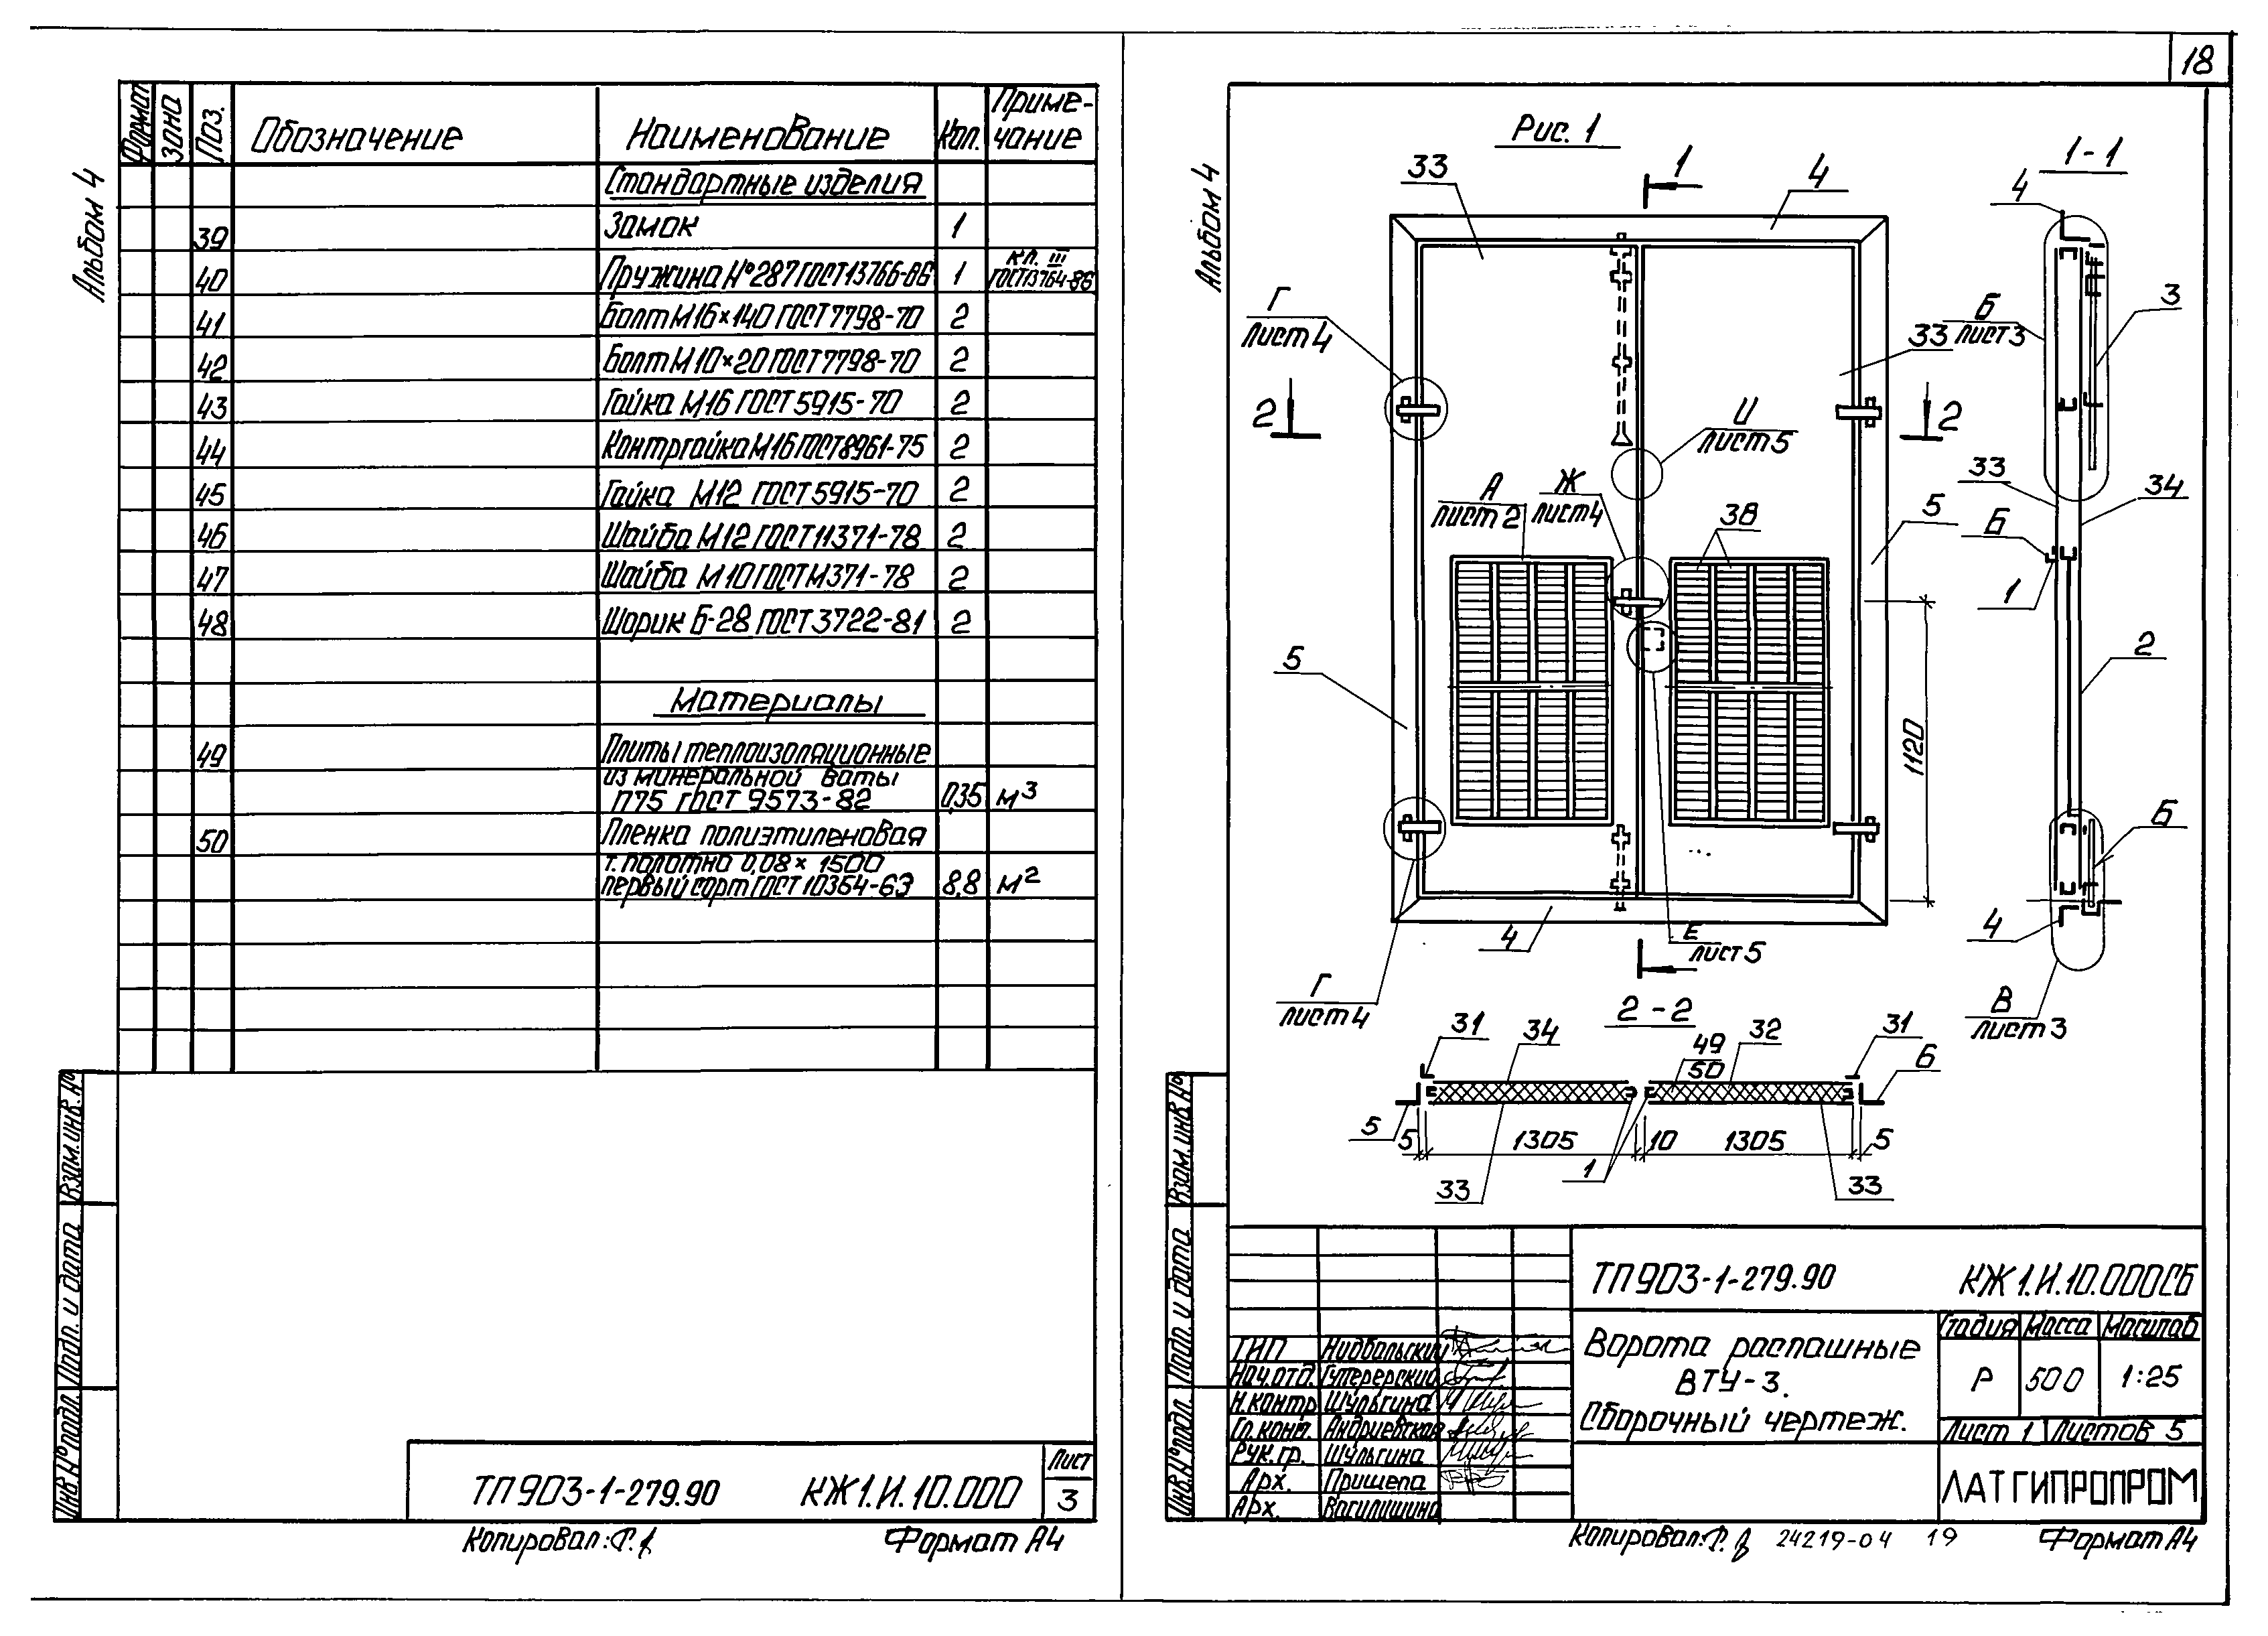 18
Альбом 4
Формат Зона Поз. Обозначение Наименование Кол. Приме-
чание
Стандартные изделия
39 Замок 1
40 Пружина №287 ГОСТ 13766-86 1 кл. III
ГОСТ 13764-86
41 Болт М16×140 ГОСТ 7798-70 2
42 Болт М10×20 ГОСТ 7798-70 2
43 Гайка М16 ГОСТ 5915-70 2
44 Контргайка М16 ГОСТ 8961-75 2
45 Гайка М12 ГОСТ 5915-70 2
46 Шайба М12 ГОСТ 11371-78 2
47 Шайба М10 ГОСТ 11371-78 2
48 Шарик Б-28 ГОСТ 3722-81 2
Материалы
49 Плиты теплоизоляционные
из минеральной ваты
П75 ГОСТ 9573-82 0,35 м³
50 Пленка полиэтиленовая
т. полотно 0,08×1500
первый сорт ГОСТ 10354-63 8,8 м²
Взам. инв. №
Подп. и дата
Инв. № подл.
ТП 903-1-279.90 КЖ1.И.10.000
Лист
3
Копировал:
Формат А4
Альбом 4
Рис. 1
33
1
4
Г
лист 4
2
2
33
И
лист 5
А
лист 2
Ж
лист 4
38
5
5
1120
4
Е
лист 5
Г
лист 4
1-1
4
Б
лист 3
3
33
34
Б
1
2
Б
4
В
лист 3
2-2
31
34
49
50
32
31
Б
5
5
1305
10
1305
5
33
1
33
Взам. инв. №
Подп. и дата
Инв. № подл.
ТП 903-1-279.90 КЖ1.И.10.000СБ
Ворота распашные
ВТУ-3.
Сборочный чертеж.
Стадия Масса Масштаб
Р 500 1:25
Лист 1 Листов 5
ЛАТГИПРОПРОМ
ГИП Нидбальский
Нач.отд.
Н.контр Шульгина
Гл.конс. Андриевская
Рук.гр. Шульгина
Арх. Прищепа
Арх.
Копировал:
24219-04 19
Формат А4